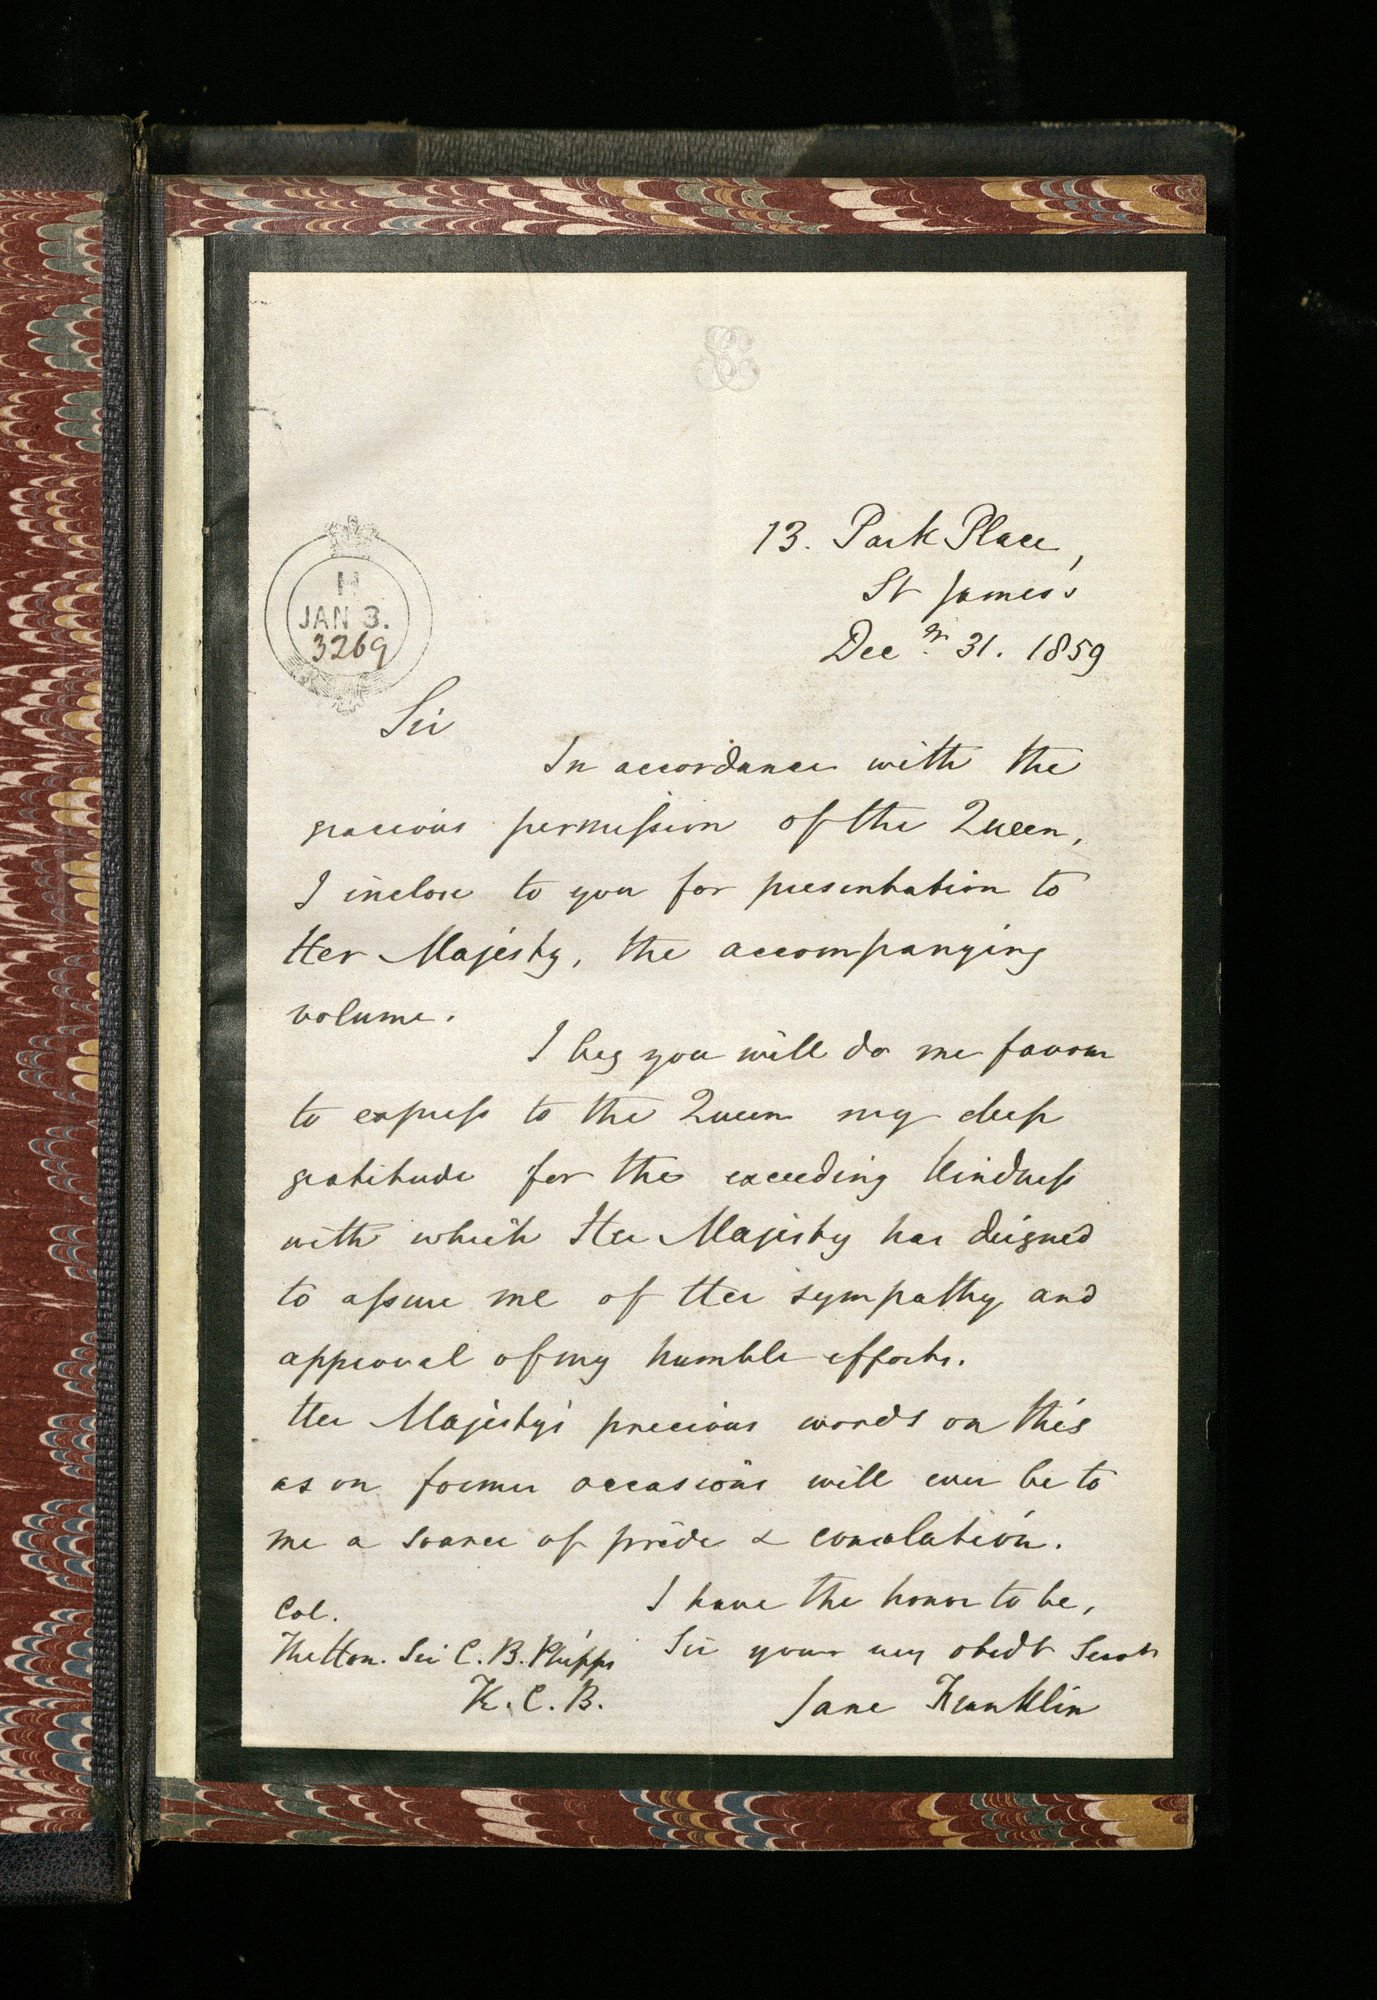 13. Park Place,
St James's
Decr. 31. 1859
H
JAN 3.
3269
Sir
In accordance with the
gracious permission of the Queen,
I inclose to you for presentation to
Her Majesty, the accompanying
volume.
I beg you will do me favour
to express to the Queen my deep
gratitude for the exceeding kindness
with which Her Majesty has deigned
to assure me of Her sympathy and
approval of my humble efforts.
Her Majesty's precious words on this
as on former occasions will ever be to
me a source of pride & consolation.
I have the honor to be,
Sir your very obedt Servt
Jane Franklin
Col.
The Hon. Sir C. B. Phipps
K. C. B.